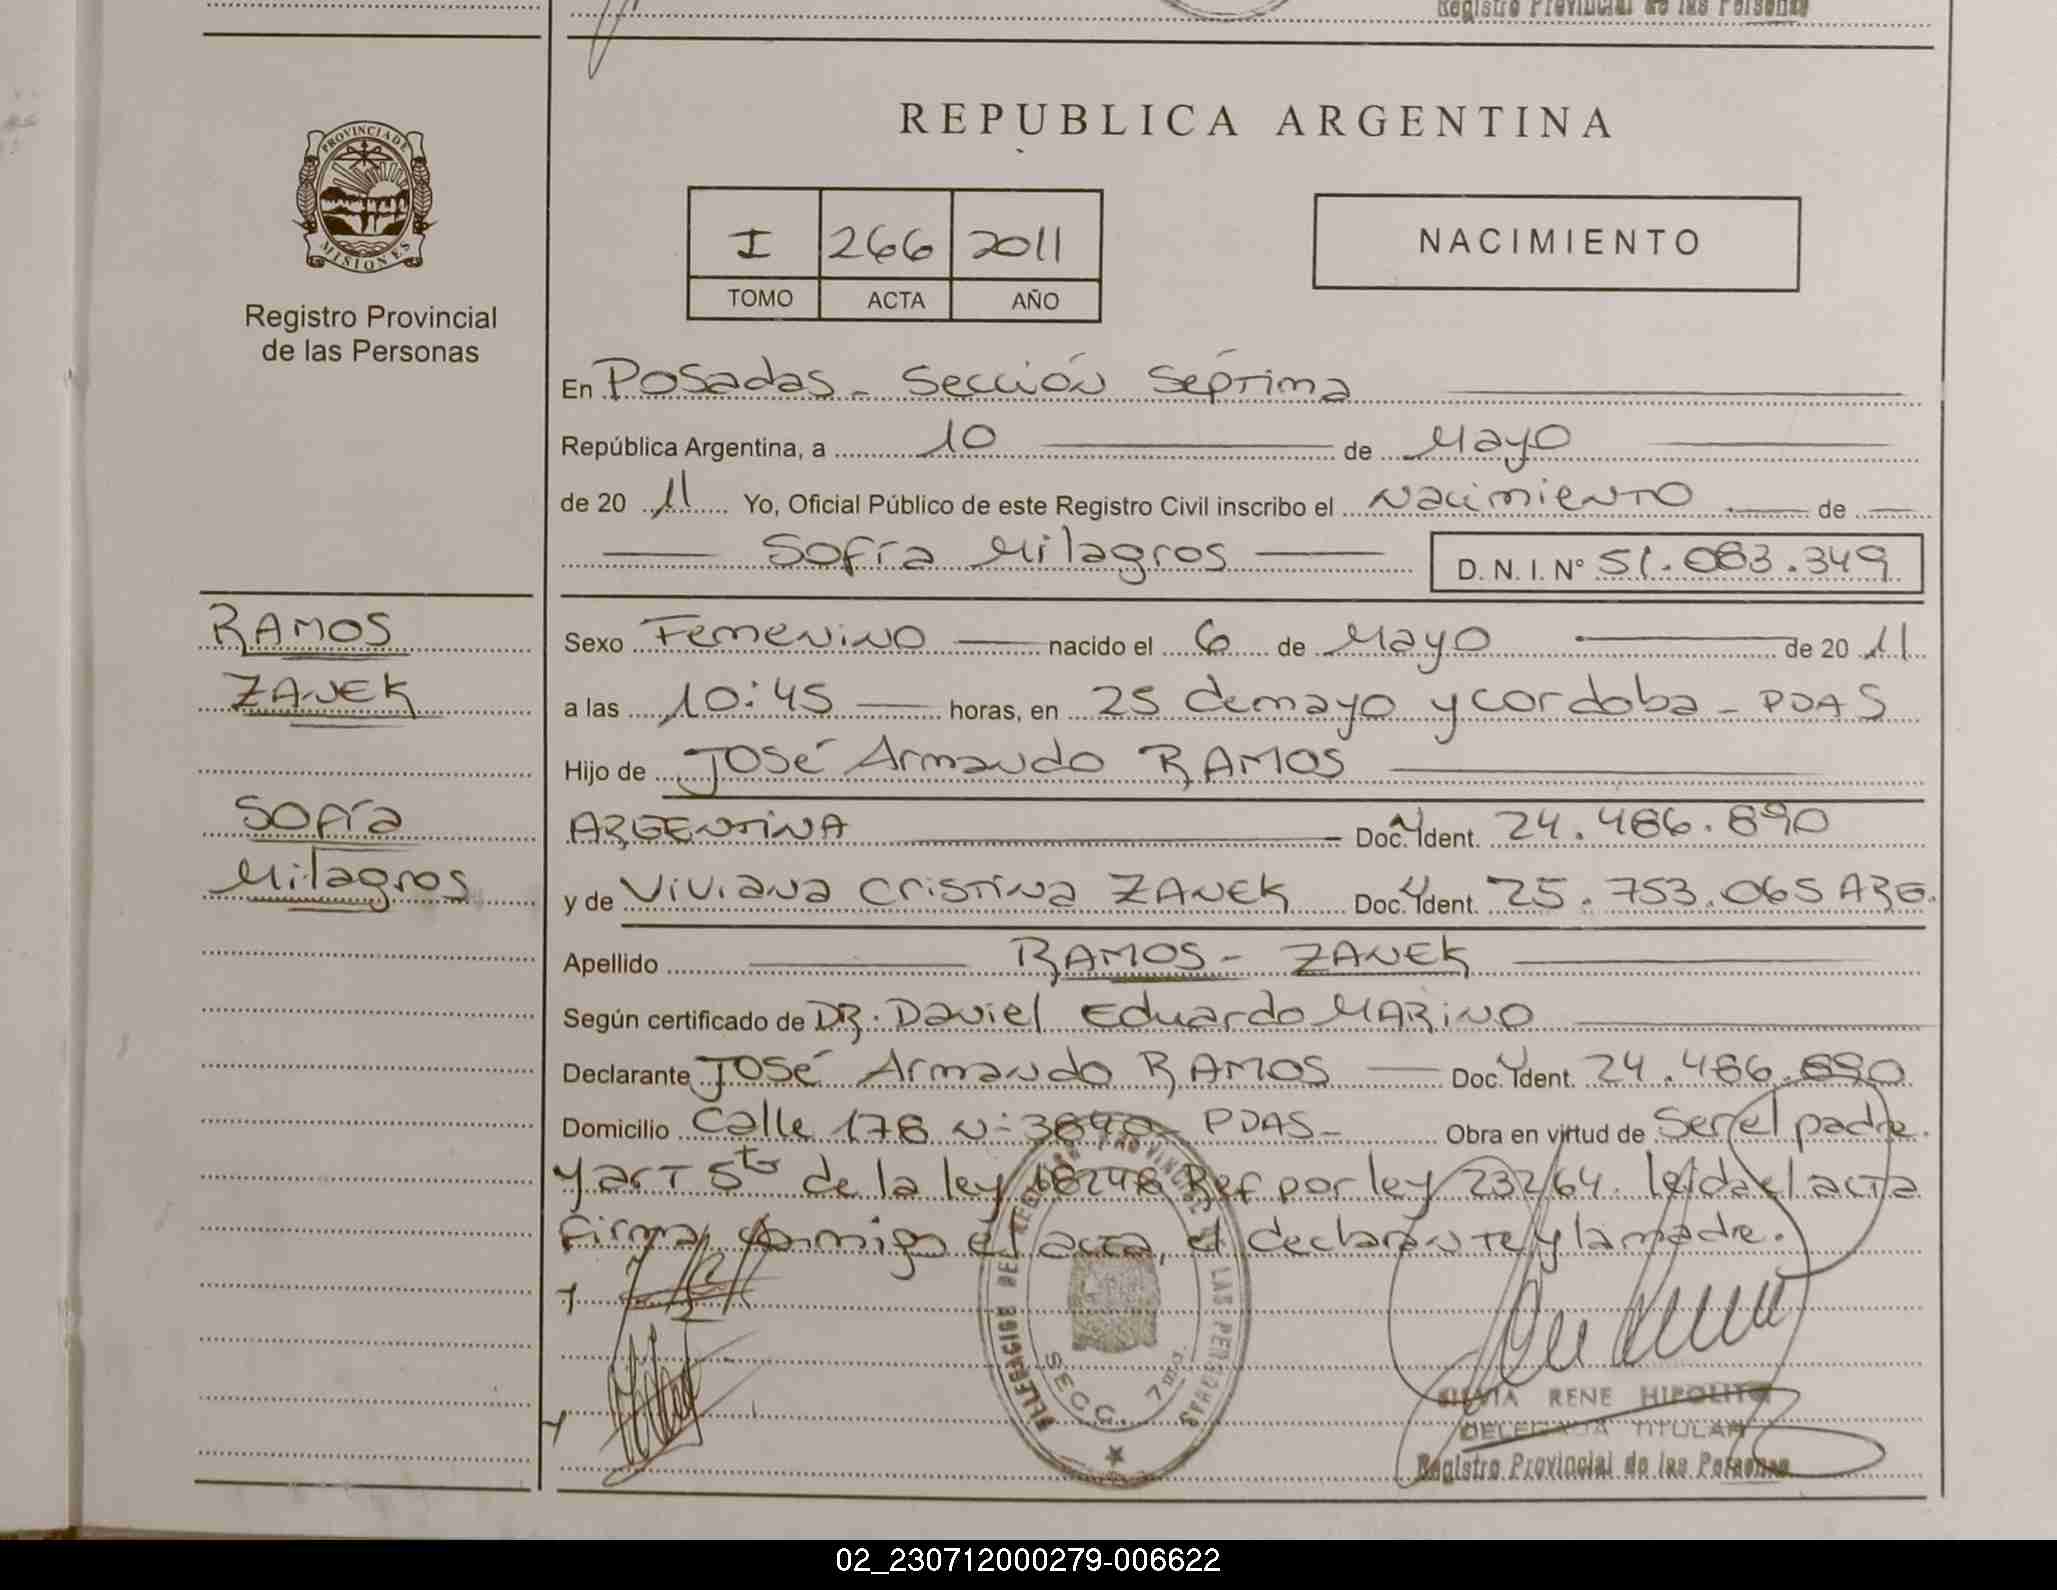 Registro Provincial de las Persona
PROVINCIA DE
MISIONES
Registro Provincial
de las Personas
REPUBLICA ARGENTINA
I 266 2011
TOMO ACTA AÑO
NACIMIENTO
En Posadas - Sección Séptima
República Argentina, a 10 de Mayo
de 20 11 Yo, Oficial Público de este Registro Civil inscribo el Nacimiento de
Sofía Milagros D. N. I. N° 51.083.349
RAMOS
ZANEK
Sofía
Milagros
Sexo Femenino nacido el 6 de Mayo de 20 11
a las 10:45 horas, en 25 de mayo y cordoba - PDAS
Hijo de José Armando RAMOS
ARGENTINA Doc. Ident. 24.486.890
y de Viviana Cristina ZANEK Doc. Ident. 25.753.065 ARG.
Apellido RAMOS - ZANEK
Según certificado de DR. Daniel Eduardo MARINO
Declarante José Armando RAMOS Doc. Ident. 24.486.890
Domicilio Calle 178 N° PDAS - Obra en virtud de Ser el padre
y art 5to de la ley 18248 Ref por ley 23264. leida el acta
Firma conmigo el acta, el declarante y la madre.
DE LAS PERSONAS
SECC. 7ma.
SILVIA RENE HIPOLITO
DELEGADA TITULAR
Registro Provincial de las Personas
02_230712000279-006622